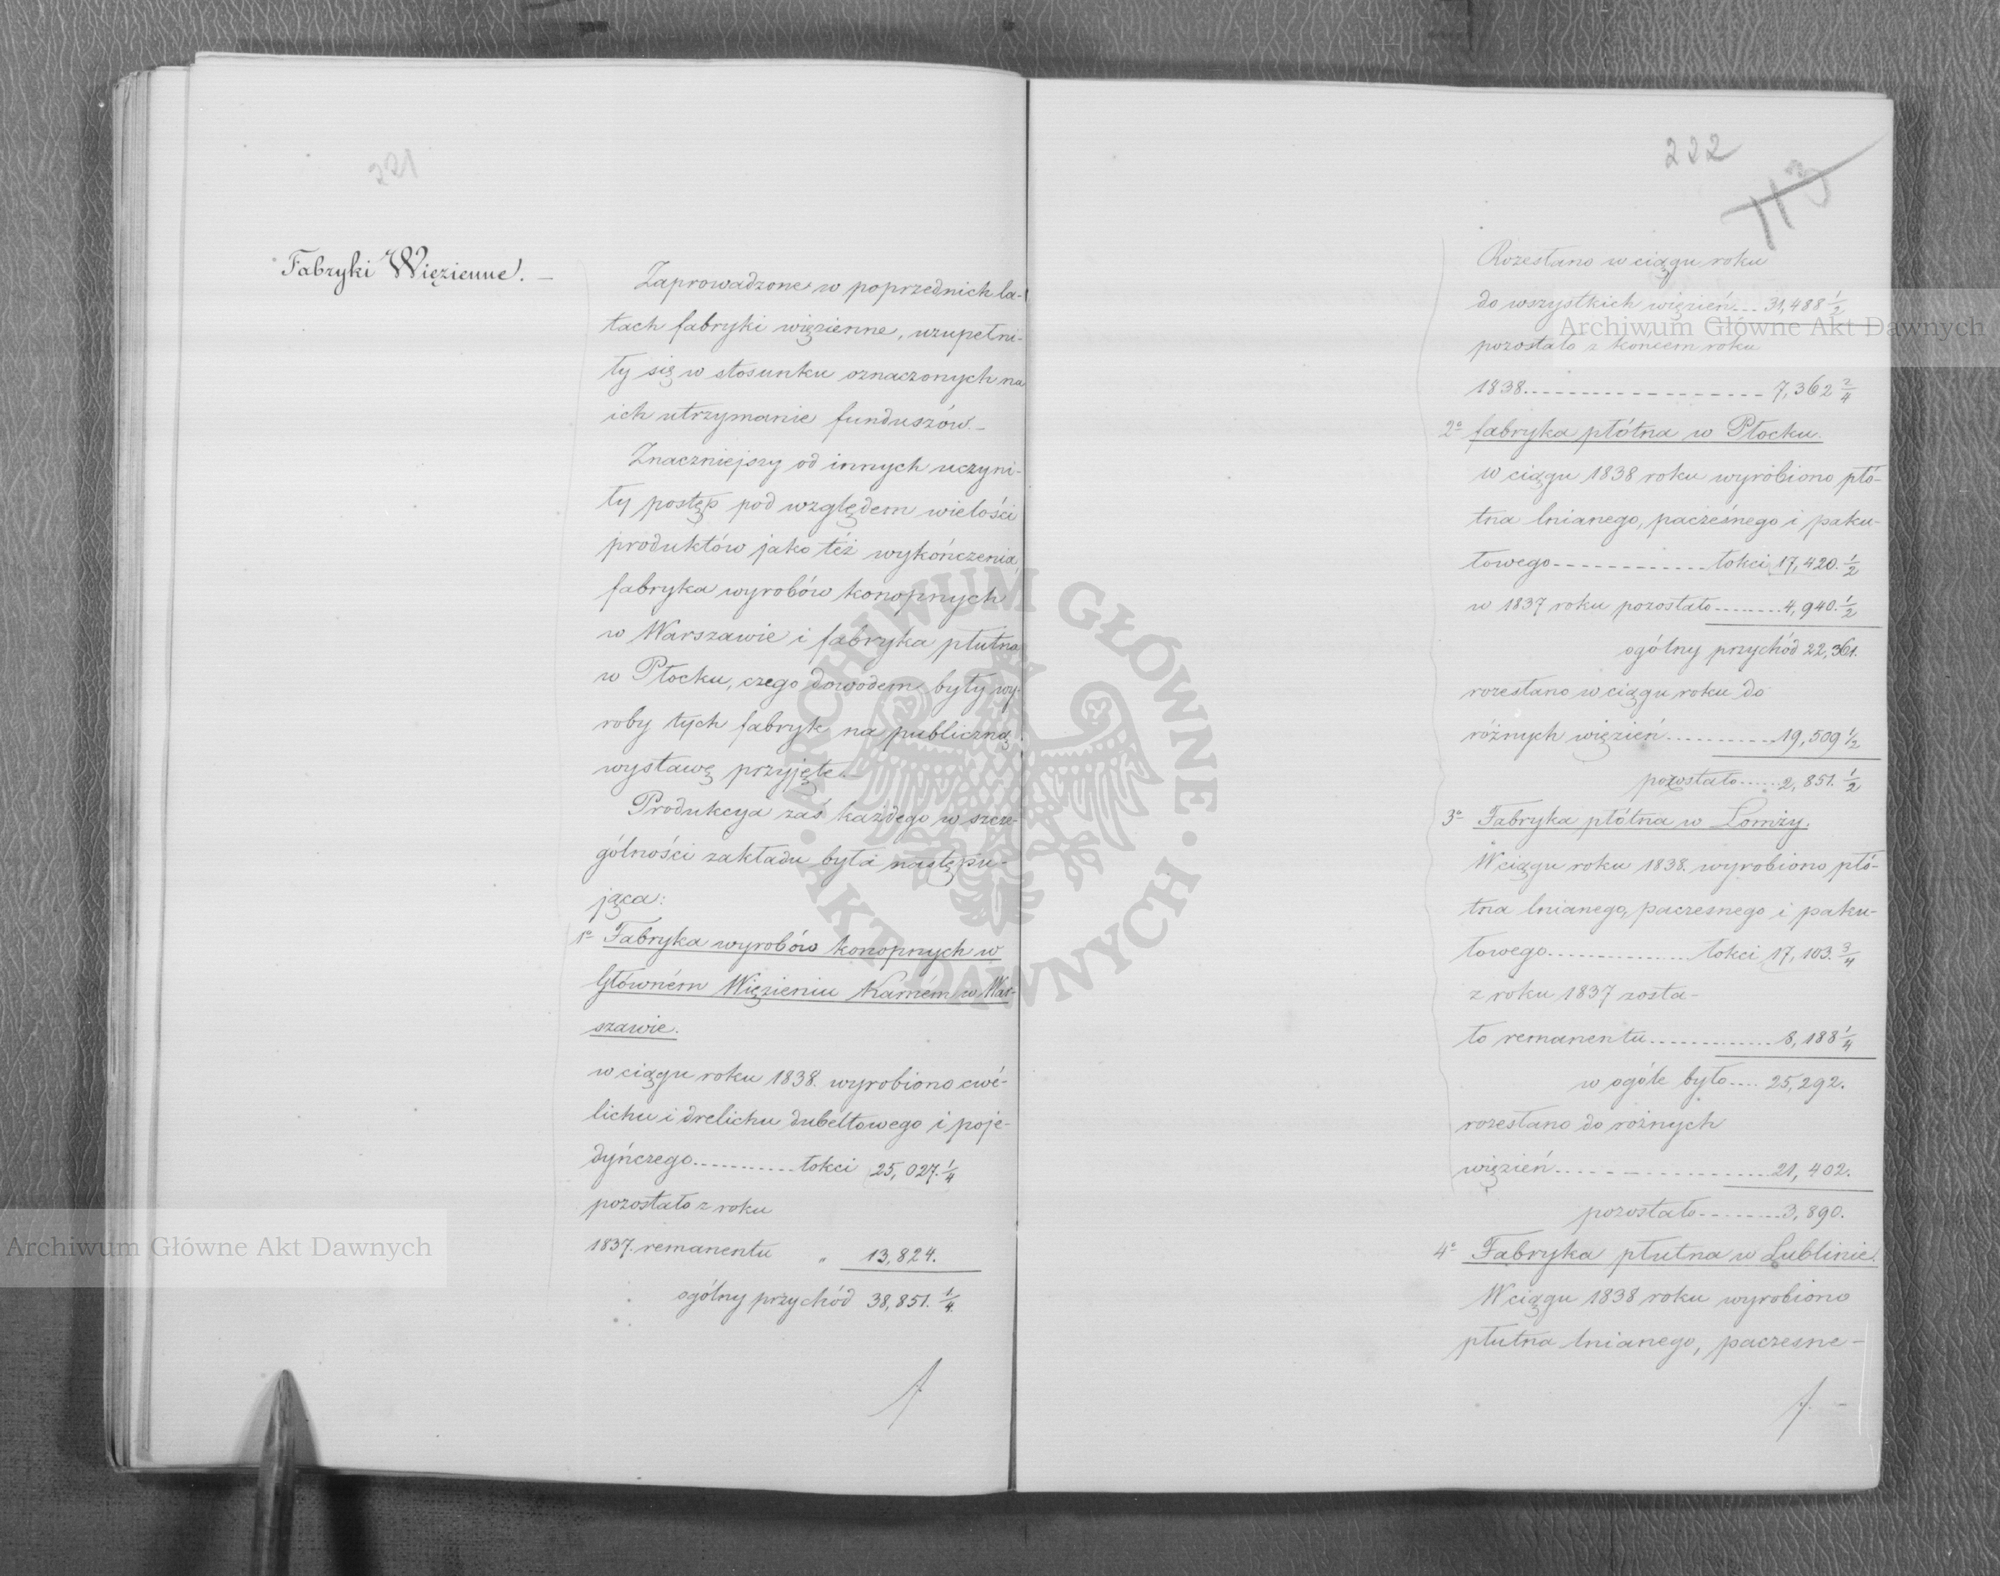 221
Fabryki Więzienne. —
Zaprowadzone w poprzednich la-
tach fabryki więzienne, uzupełni-
ły się w stosunku oznaczonych na
ich utrzymanie funduszów. —
Znaczniejszy od innych uczyni-
ły postęp pod względem wielości
produktów jako też wykończenia,
fabryka wyrobów konopnych
w Warszawie i fabryka płutna
w Płocku, czego dowodem były wy-
roby tych fabryk na publiczną
wystawę przyjęte. —
Produkcya zaś każdego w szcze-
gólności zakładu była następu-
jąca:
1o Fabryka wyrobów konopnych w
Główném Więzieniu Karném w War-
szawie.
w ciągu roku 1838. wyrobiono cwé-
lichu i drelichu dubeltowego i poje-
dyńczego............łokci 25,027. 1/4
pozostało z roku
1837. remanentu „ 13,824.
ogólny przychód 38,851. 1/4
222
113
Rozesłano w ciągu roku
do wszystkich więzień....31,488 1/2
pozostało z końcem roku
1838.-------------------7,362 2/4
2o fabryka płótna w Płocku.
w ciągu 1838 roku wyrobiono płó-
tna lnianego, paczésnego i paku-
łowego-------------łokci 17,420. 1/2
w 1837 roku pozostało........4,940. 1/2
ogólny przychód 22,361.
rozesłano w ciągu roku do
różnych więzień............19,509 1/2
pozostało.....2,851. 1/2
3o Fabryka płótna w Łomży.
W ciągu roku 1838. wyrobiono płó-
tna lnianego, paczesnego i paku-
łowego...............łokci 17,103. 3/4
z roku 1837 zosta-
ło remanentu.............8,188 1/4
w ogóle było.... 25,292.
rozesłano do różnych
więzień.......................21,402.
pozostało........3,890.
4o Fabryka płutna w Lublinie.
W ciągu 1838 roku wyrobiono
płutna lnianego, paczesne-
Archiwum Główne Akt Dawnych
Archiwum Główne Akt Dawnych
ARCHIWUM GŁÓWNE
· AKT DAWNYCH ·